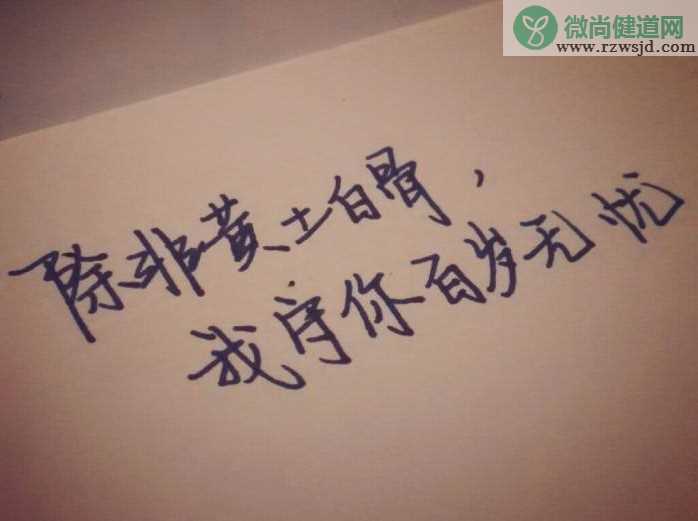 微尚健道网
www.rzwsjd.com
除非黄土白骨，
我守你百岁无忧